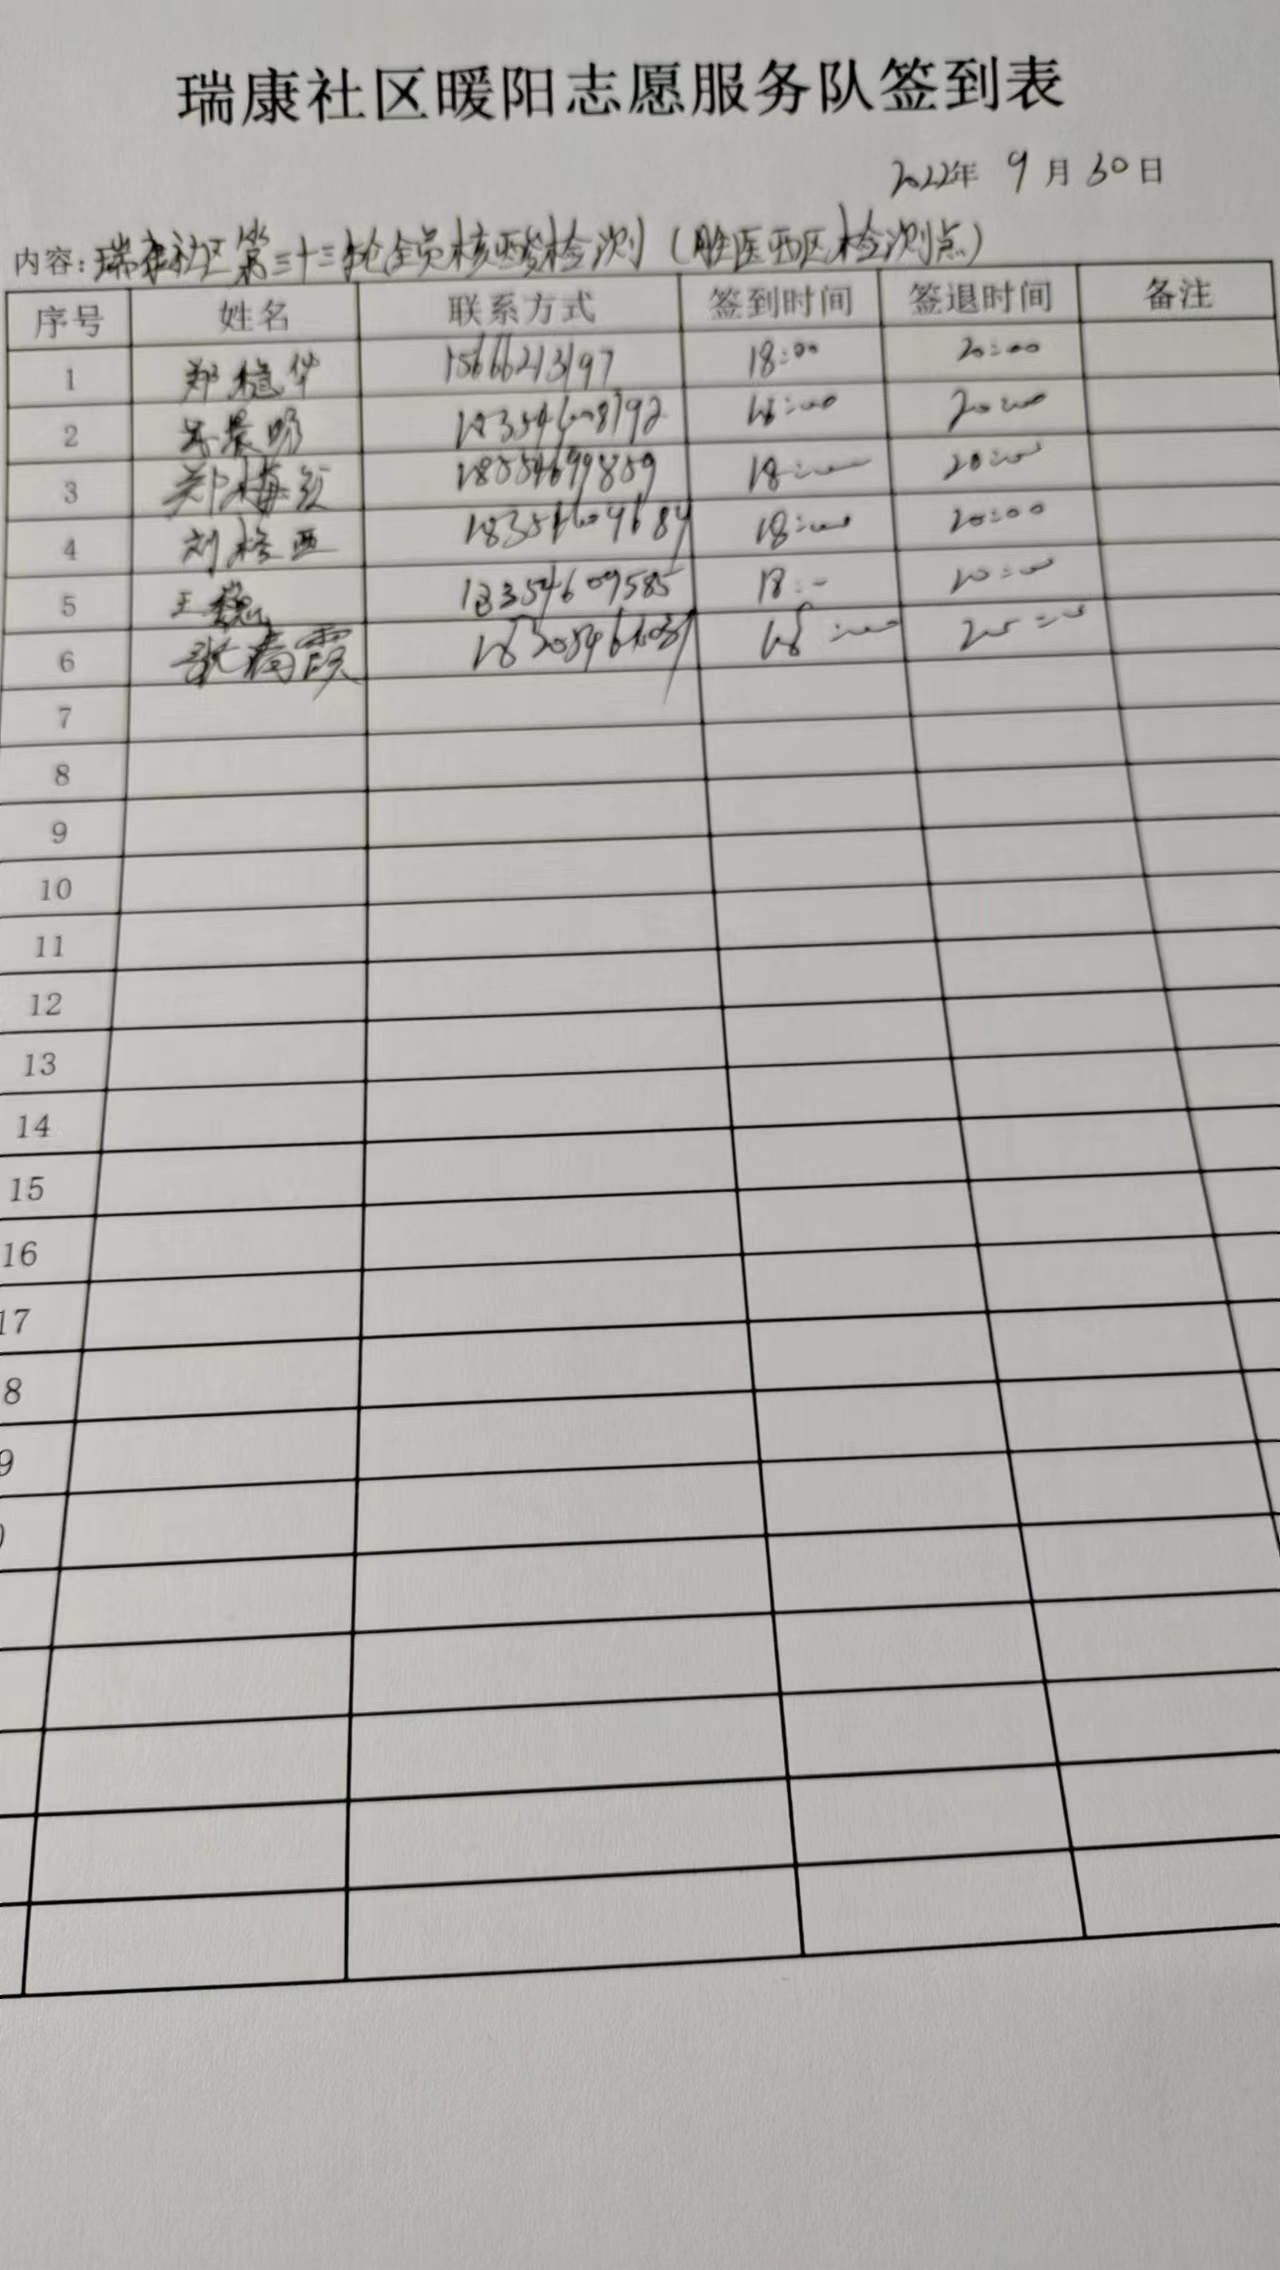 瑞康社区暖阳志愿服务队签到表
2022年 9月30日
内容：瑞康社区第三十三轮全员核酸检测（胜医西区检测点）
序号 姓名 联系方式 签到时间 签退时间 备注
1 郑 华 15666213197 18:00 20:00
2 18:00 20:00
3 郑梅 18554699859 18:00 20:00
4 刘格西 18354604684 18:00 20:00
5 王巍 13354609585 18:00 20:00
6 张 霞 18:00 20:00
7
8
9
10
11
12
13
14
15
16
17
8
9